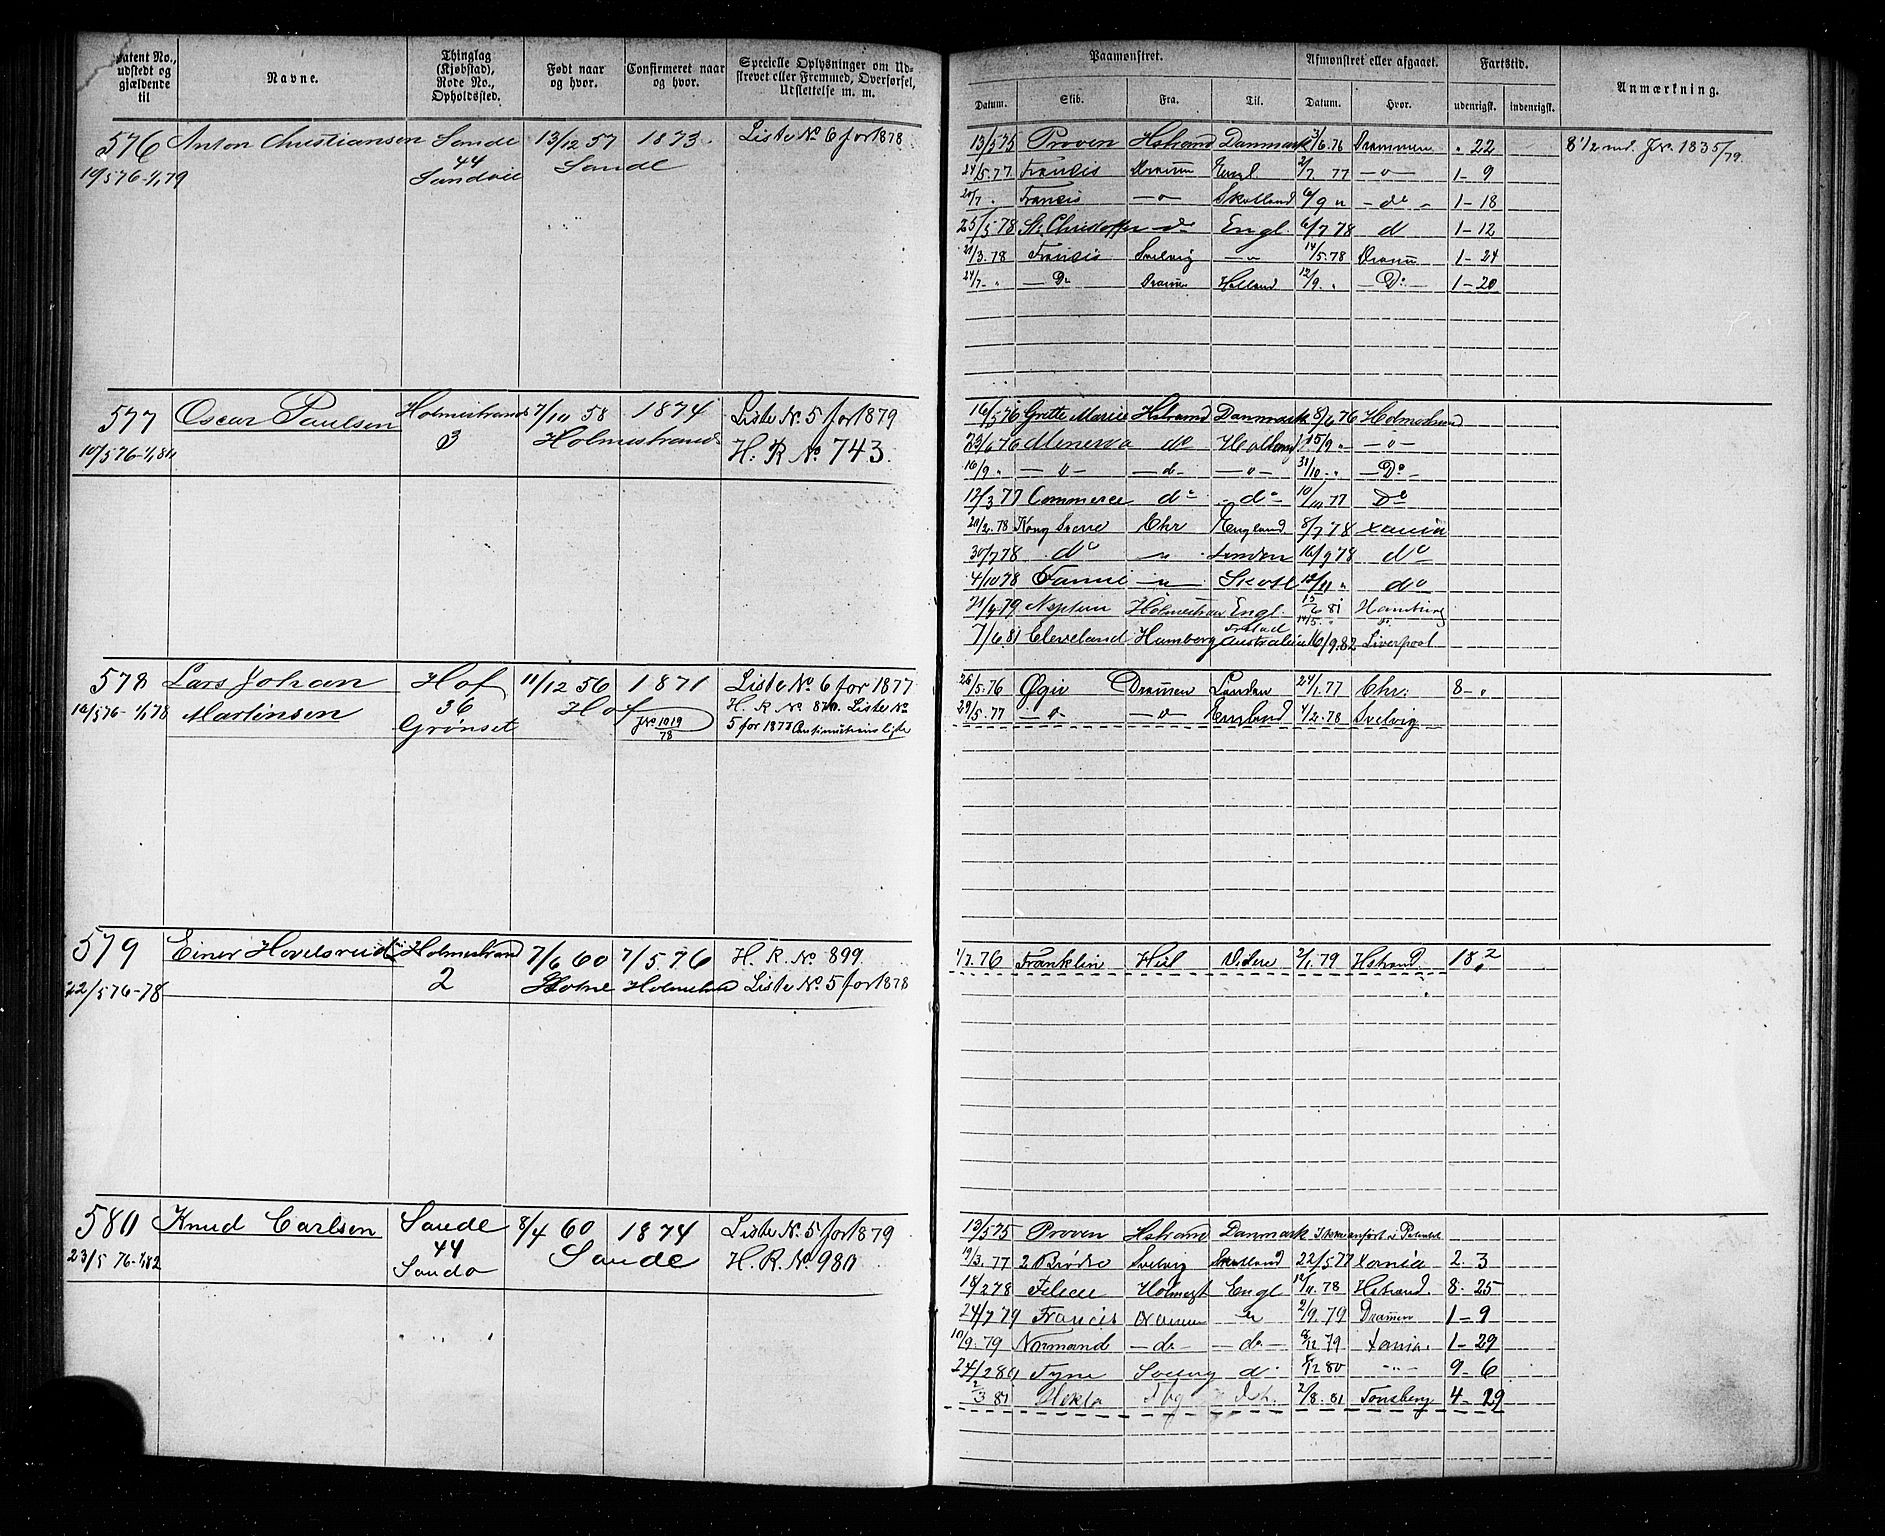 Patent No., udstedt og gjældende til
Navne.
Thinglag (Kjøbstad), Rode No., Opholdssted.
Født naar og hvor.
Confirmeret naar og hvor.
Specielle Oplysninger om Udskrevet eller Fremmed, Overførsel, Udslettelse m. m.
Paamønstret.
Afmønstret eller afgaaet.
Fartstid.
Anmærkning.
Datum. Skib. Fra. Til. Datum. Hvor. udenrigsk. indenrigsk.
576 Anton Christiansen Sande 13/12 57 1873 Liste No 6 for 1878
19/5 76-1/1 79 44 Sandvii Sande
13/5 75 Prøven Hstrand Danmark 3/6.76 Drammen " 22 8 1/2 md. JNr. 1835/79.
24/5.77 Francis Dramm Engl 2/7 77 —o— 1-9
20/7 " Francis —o— Skotland 6/9 " — do — 1-18
25/5 78 St. Christoffer do Engl. 6/7 78 d 1-12
21/3.78 Francis Svelvig —"— 14/5.78 Dramm 1-24
24/7- " — Do Dramm Holland 12/9. " — Do — 1-20
577 Oscar Paulsen Holmestrand 7/10 58 1874 Liste No. 5 for 1879
10/5 76-1/1 80 3 Holmestrand H. R No. 743.
16/5 76 Grette Marie Hstrand Danmark 8/6 76 Holmestrand
23/6 76 Minerva do Holland 15/9 " —o—
16/9 " —o— —d— —o— 31/10 " — Do —
12/3 77 Commerce do do 10/10 77 Do
20/2.78 Kong Sverre Chr England 8/7 78 Xania
30/7 78 do " London 16/9 78 do
4/10 78 Fanni —"— Skotl 12/11 " do
21/6.79 Neptun Holmestran Engl. 15/6 81 Hamburg
7/6.81 Cleveland Hamberg Australien 16/9.82 Liverpool
578 Lars Johan Hof 11/12 56 1871 Liste No 6 for 1877
10/5 76-1/1 78 Martinsen 36 Hof JNo 1019/78 H. R No 870. Liste No
Grønset 5 for 1877
26/5.76 Øgir Drammen London 24/1.77 Chr. 8- "
29/5.77 —o— —o— England 4/2.78 Svelvig
579 Einer Hovelsrud Holmestrand 7/6 60 7/5 76 H. R. No 899.
22/5 76-78 2 Botne Holmestrd Liste No. 5 for 1878
1/7.76 Franklin Hül 2/1.79 Hstrand 18. 2
580 Knud Carlsen Sande 8/4 60 1874 Liste No. 5 for 1879
23/5 76-1/1 82 44 Sande H. R. No. 980
Sando
13/5 75 Prøven Hstrand Danmark
19/3.77 2 Brødre Svelvig Skotland 22/5 77 Xania 2. 3
18/2 78 Felicie Holmest Engl 12/11.78 Hstrand. 8. 25
24/7 79 Francis Drammen " 2/9.79 Drammen 1-9
10/9.79 Normand — do — — do — 8/12 79 Xania. 1-29
24/2 80 Fyne Svelvig d 8/12 80 — " — 9-6
2/3 81 Hekla Tbg 2/8.81 Tønsberg 4-29